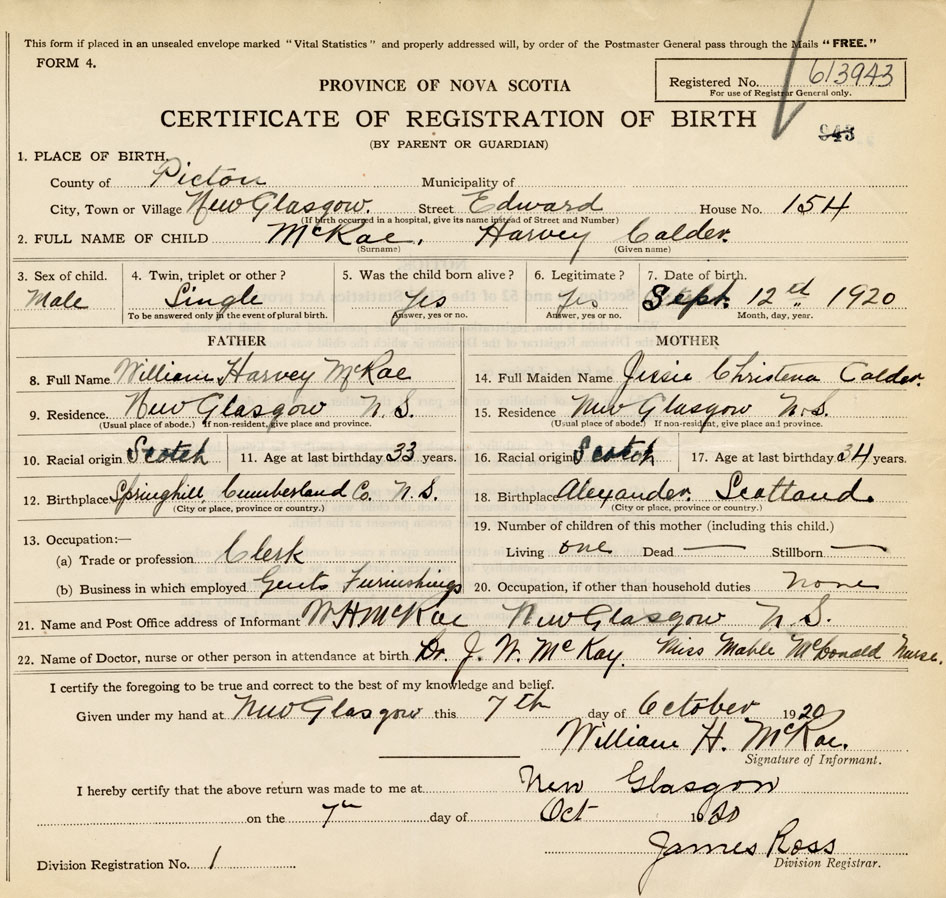 This form if placed in an unsealed envelope marked "Vital Statistics" and properly addressed will, by order of the Postmaster General pass through the Mails "FREE."
FORM 4.
PROVINCE OF NOVA SCOTIA
Registered No. 613943
For use of Registrar General only.
CERTIFICATE OF REGISTRATION OF BIRTH
(BY PARENT OR GUARDIAN)
943
1. PLACE OF BIRTH,
County of Pictou Municipality of
City, Town or Village New Glasgow. Street Edward House No. 154
(If birth occurred in a hospital, give its name instead of Street and Number)
2. FULL NAME OF CHILD McRae, Harvey Calder.
(Surname) (Given name)
3. Sex of child. 4. Twin, triplet or other? 5. Was the child born alive? 6. Legitimate? 7. Date of birth.
Male Single Yes Yes Sept. 12ed 1920
To be answered only in the event of plural birth. Answer, yes or no. Answer, yes or no. Month, day, year.
FATHER MOTHER
8. Full Name William Harvey McRae 14. Full Maiden Name Jessie Christena Calder.
9. Residence. New Glasgow N.S. 15. Residence New Glasgow N.S.
(Usual place of abode.) If non-resident, give place and province. (Usual place of abode.) If non-resident, give place and province.
10. Racial origin Scotch 11. Age at last birthday 33 years. 16. Racial origin Scotch 17. Age at last birthday 34 years.
12. Birthplace Springhill, Cumberland Co. N.S. 18. Birthplace Alexander. Scotland.
(City or place, province or country.) (City or place, province or country.)
19. Number of children of this mother (including this child.)
13. Occupation:—
Living one Dead — Stillborn —
(a) Trade or profession Clerk
(b) Business in which employed Gents Furnishings 20. Occupation, if other than household duties none
21. Name and Post Office address of Informant W H McRae New Glasgow N.S.
22. Name of Doctor, nurse or other person in attendance at birth Dr. J. W. McKay. Miss Mable McDonald Nurse.
I certify the foregoing to be true and correct to the best of my knowledge and belief.
Given under my hand at New Glasgow this 7th day of October 1920
William H. McRae.
Signature of Informant.
I hereby certify that the above return was made to me at New Glasgow
on the 7th day of Oct 1920
James Ross
Division Registration No. 1 Division Registrar.